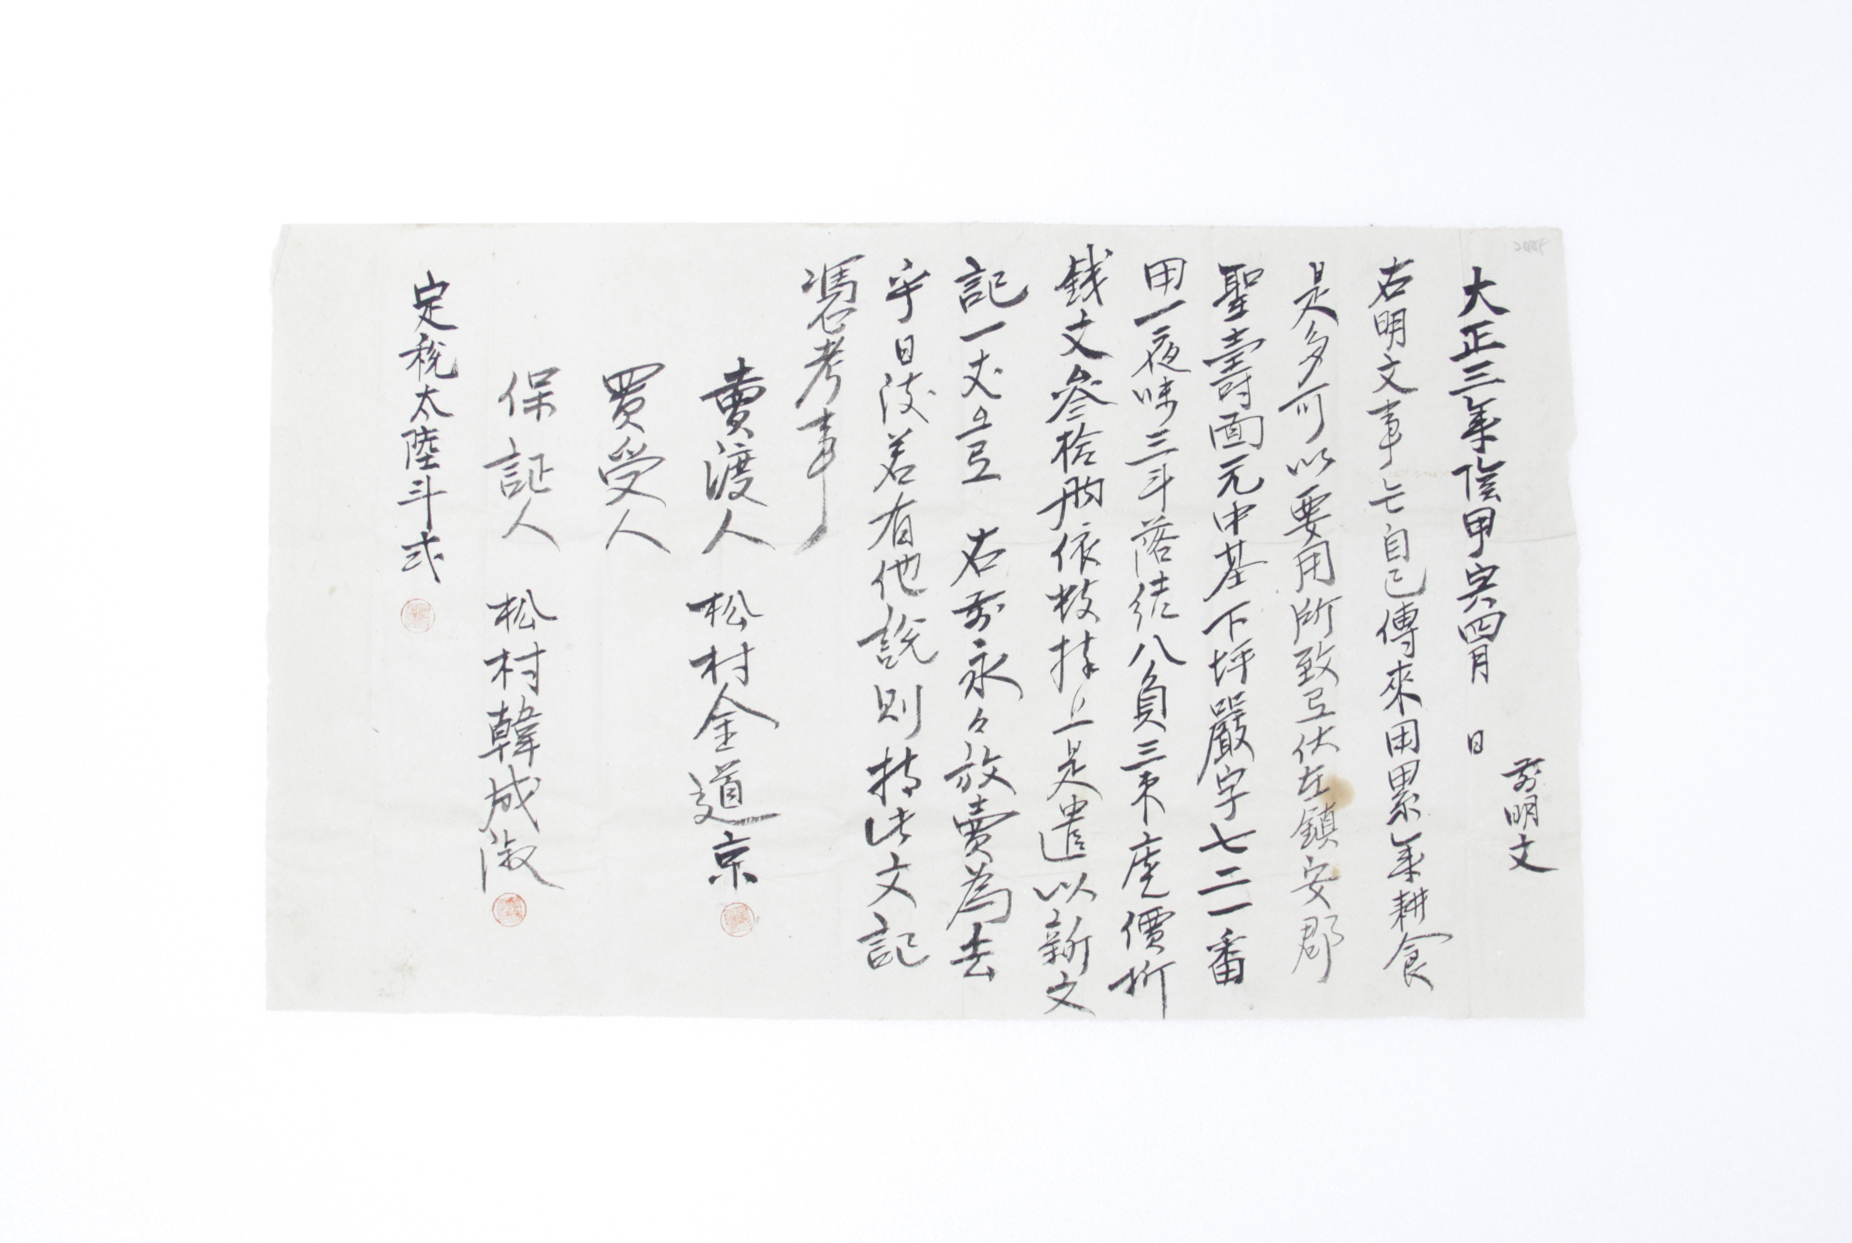 大正三年陰甲寅四月 日
前明文
右明文事亡自己傳來畓累年耕食
是多可以要用所致로伏在鎭安郡
聖壽面元中基下坪嚴字七二一番
田一夜味三斗落結八負三束庫價折
錢文叁拾
依
捧上是遣以新文
記一丈並以 右前永々放賣爲去
乎日後若有他說則持此文記
憑考事
賣渡人 松村金道京
買受人
保証人 松村韓成淑
定稅太陸斗式